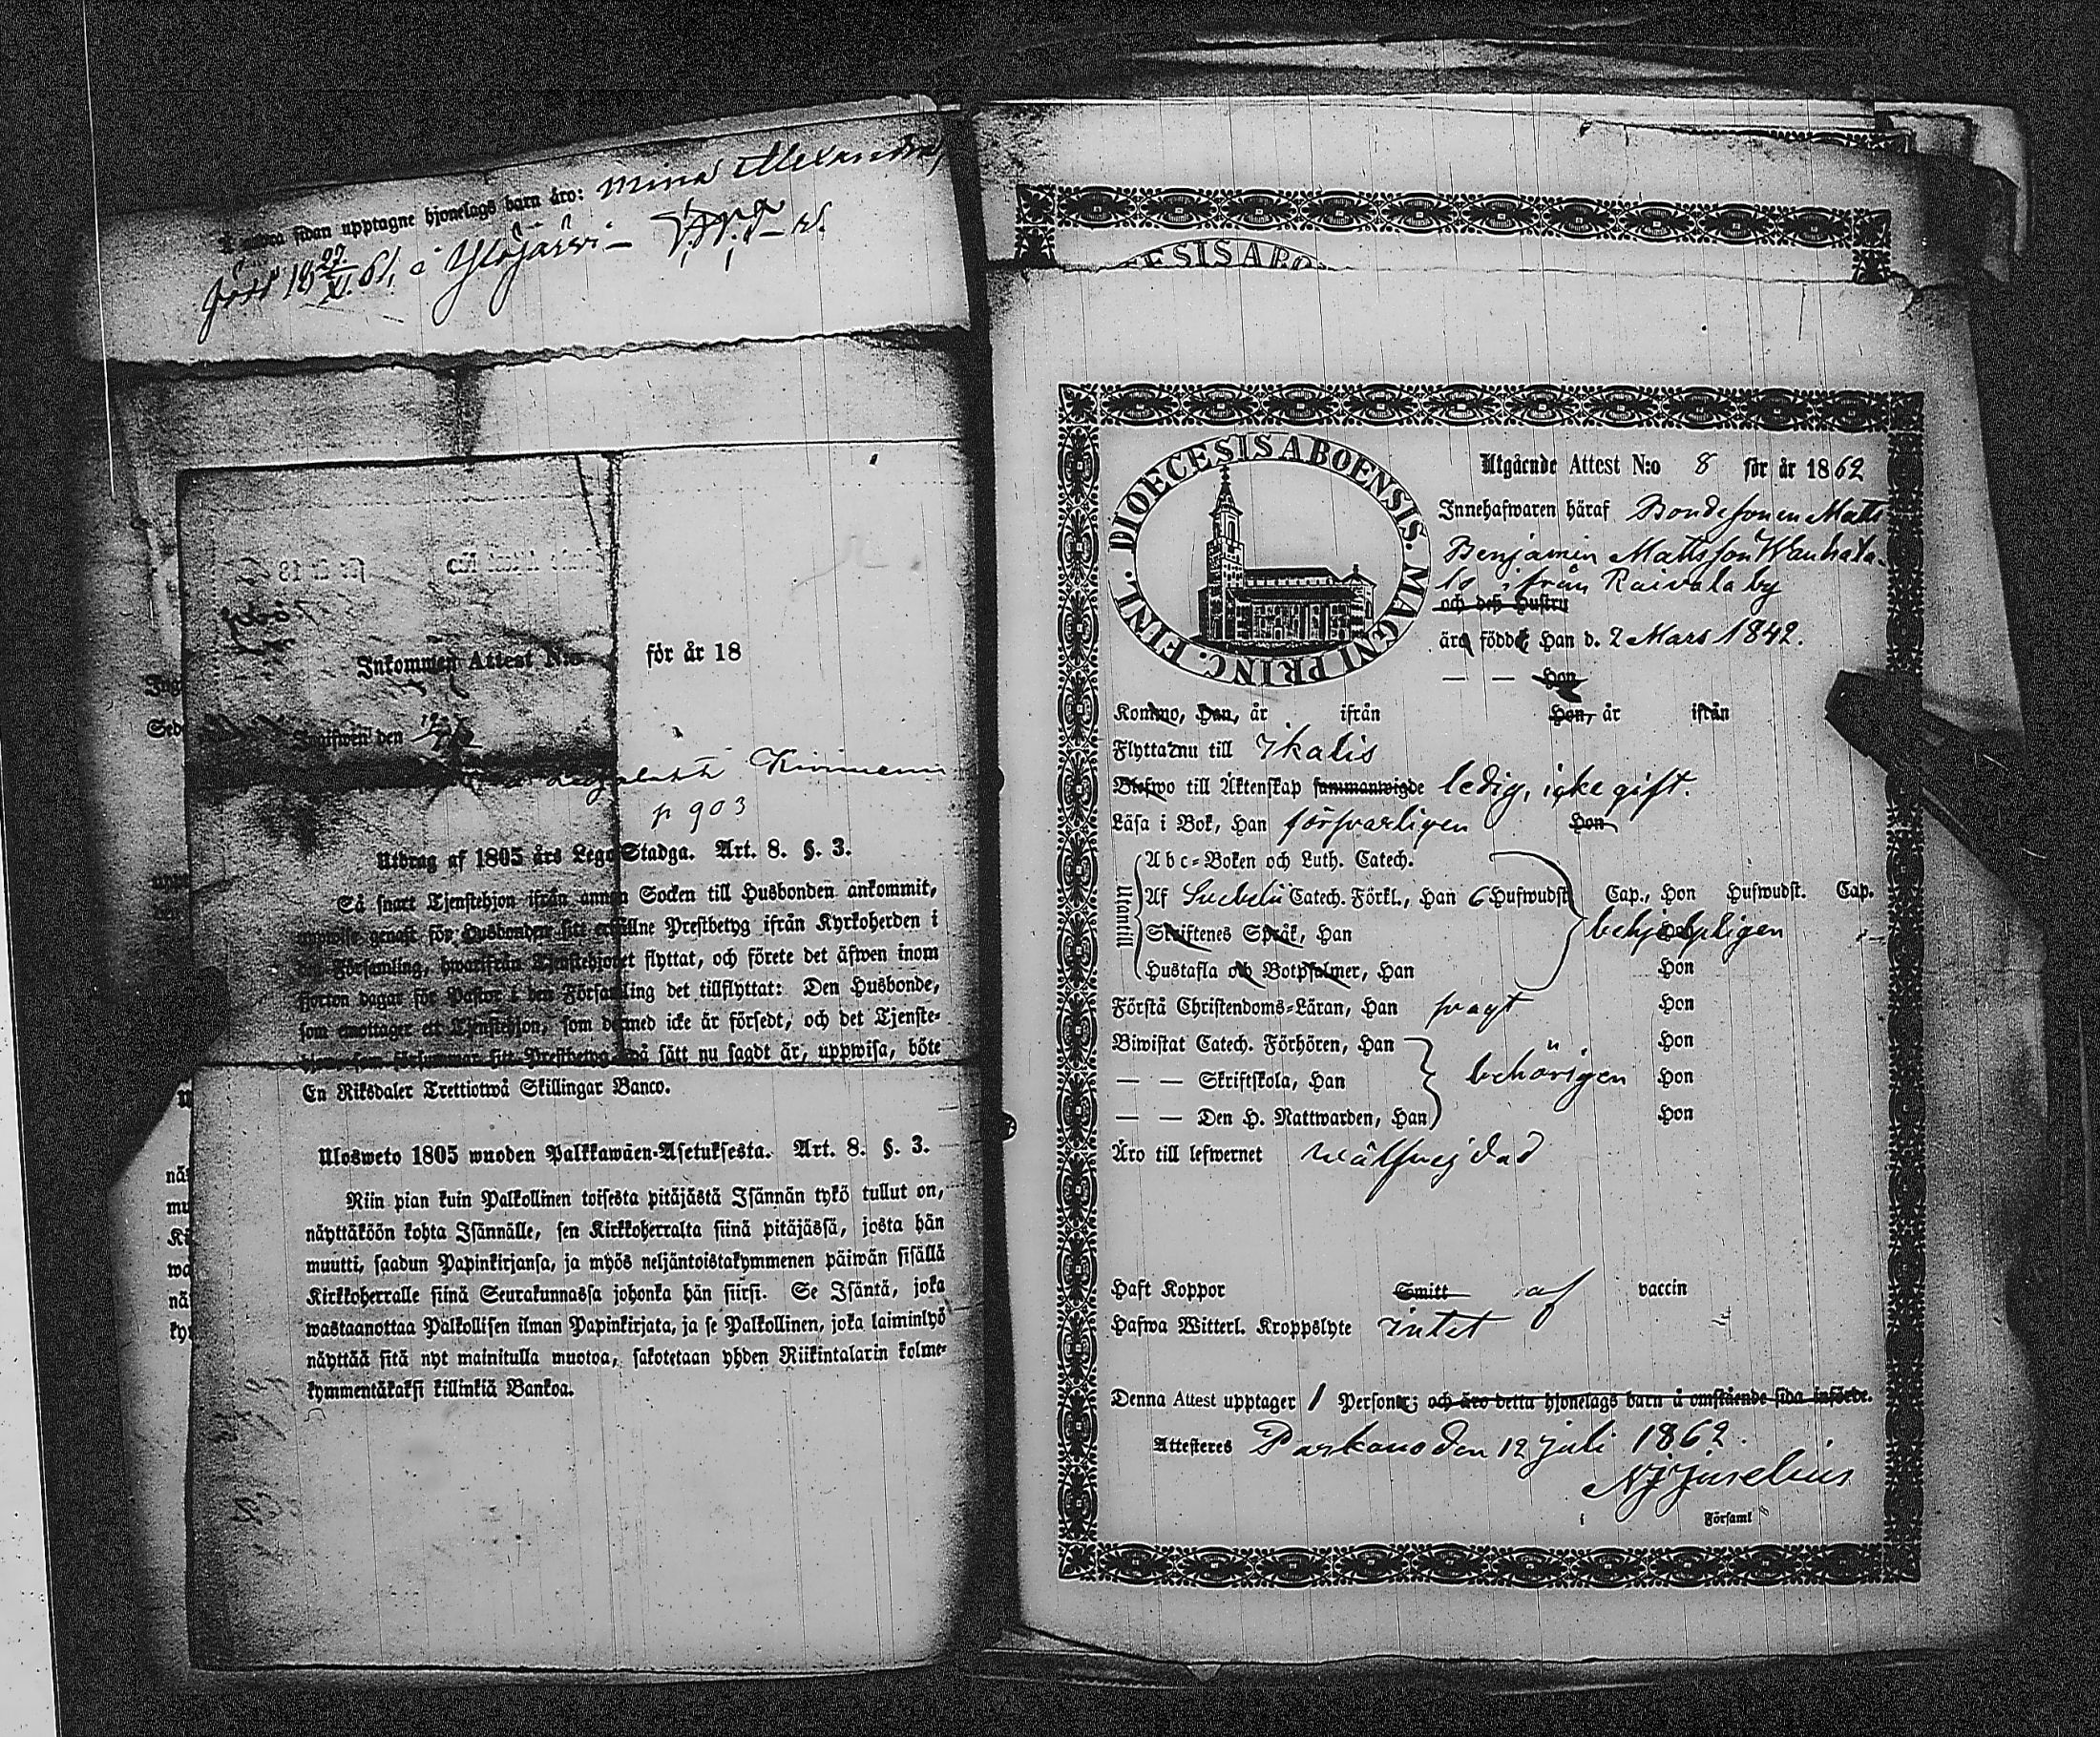 sidan upptagne hjonelags barn äro: Mina Alexandra,
född 18 27/XI 61, i Ylöjärvi –
för år 18
Inkommen Attest N:o
den
p 903
Utdrag af 1805 års Lego Stadga. Art. 8. §. 3.
Så snart Tjenstehjon ifrån annan Socken till Husbonden ankommit,
uppwise genast för Husbonden sitt erhållne Prestbetyg ifrån Kyrkoherden i
den Församling, hwarifrån Tjenstehjonet flyttat, och förete det äfwen inom
fjorton dagar för Pastor i den Församling det tillflyttat: Den Husbonde,
som emottager ett Tjenstehjon, som dermed icke är försedt, och det Tjenste-
hjon, som försummar sitt Prestbetyg, på sätt nu sagdt är, uppwisa, böte
En Riksdaler Trettiotwå Skillingar Banco.
Ulosweto 1805 wuoden Palkkawäen-Asetuksesta. Art. 8. §. 3.
Niin pian kuin Palkollinen toisesta pitäjästä Isännän tykö tullut on,
näyttäköön kohta Isännälle, sen Kirkkoherralta siinä pitäjässä, josta hän
muutti, saadun Papinkirjansa, ja myös neljäntoistakymmenen päiwän sisällä
Kirkkoherralle siinä Seurakunnassa johonka hän siirsi. Se Isäntä, joka
wastaanottaa Palkollisen ilman Papinkirjata, ja se Palkollinen, joka laiminlyö
näyttää sitä nyt mainitulla muotoa, sakotetaan yhden Riikintalarin kolme-
kymmentäkaksi killinkiä Bankoa.
DIOECESIS ABOENSIS. MAGNI PRINC. FINL.
Utgående Attest N:o 8 för år 1862
Innehafwaren häraf Bondesonen Matts
Benjamin Mattsson Wanhata-
lo ifrån Raivala by
och deß Hustru
äro födde Han d. 2 Mars 1842.
— — Hon
Kommo, Han, år ifrån Hon, år ifrån
Flytta nu till Ikalis
Blefwo till Äktenskap sammanwigde ledig, icke gift.
Läsa i Bok, Han försvarligen Hon
Utantill
Abc-Boken och Luth. Catech.
Af Svebelii Catech. Förkl., Han 6 Hufwudst. Cap., Hon Hufwudst. Cap.
Skriftenes Språk, Han behjelpligen
Hustafla och Botpsalmer, Han Hon
Förstå Christendoms-Läran, Han svagt Hon
Biwistat Catech. Förhören, Han Hon
— — Skriftskola, Han behörigen Hon
— — Den H. Nattwarden, Han Hon
Äro till lefwernet wälfrejdad
Haft Koppor Smitt af vaccin
Hafwa Witterl. Kroppslyte intet
Denna Attest upptager 1 Personer; och äro detta hjonelags barn å omstående sida införde.
Attesteres Parkano den 12 Juli 1862.
N J Juselius
i Församl